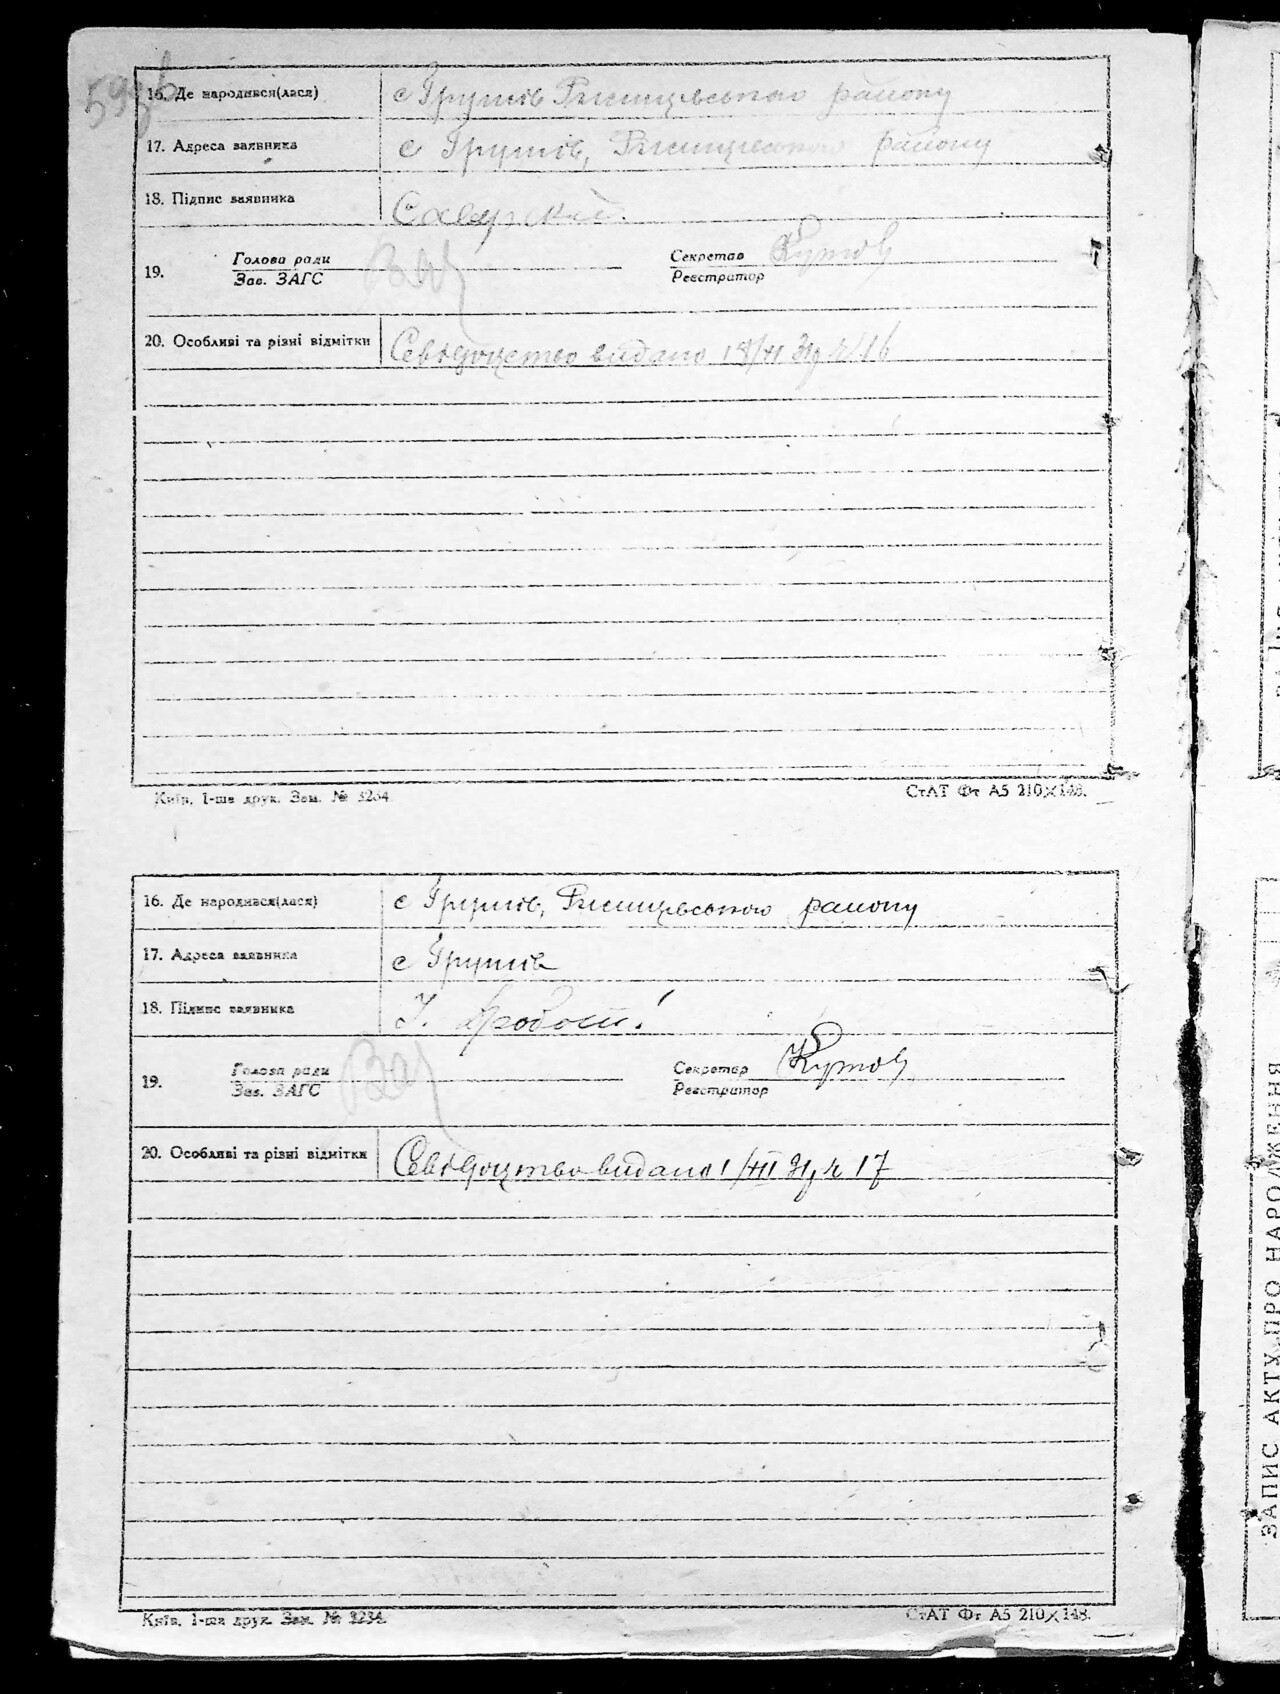 16. Де народився(лася) с Грушів Ржищевського району
17. Адреса заявника с Грушів, Ржищевського району
18. Підпис заявника
19. Голова ради
Зав. ЗАГС
Секретар
Реєстратор
20. Особливі та різні відмітки Свідоцтво видано
Київ, 1-ша друк. Зам. № 3234
СтАТ Фт А5 210×148.
16. Де народився(лася) с Грушів, Ржищевського району
17. Адреса заявника с Грушів
18. Підпис заявника
19. Голова ради
Зав. ЗАГС
Секретар
Реєстратор
20. Особливі та різні відмітки Свідоцтво видано 17
Київ, 1-ша друк. Зам. № 3234
СтАТ Фт А5 210×148.
ЗАПИС АКТУ ПРО НАРОДЖЕННЯ